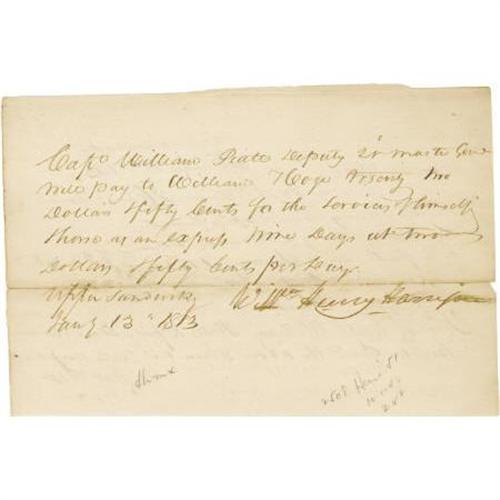 Capt. William Piatt Deputy Qr master Genl
will pay to William Hoge Twenty two
Dollars & fifty Cents for the Services of himself
& horse as an express Nine Days at two
Dollars & fifty Cents per Day
Upper Sandusky Willm Henry Harrison
Jany 13th 1813